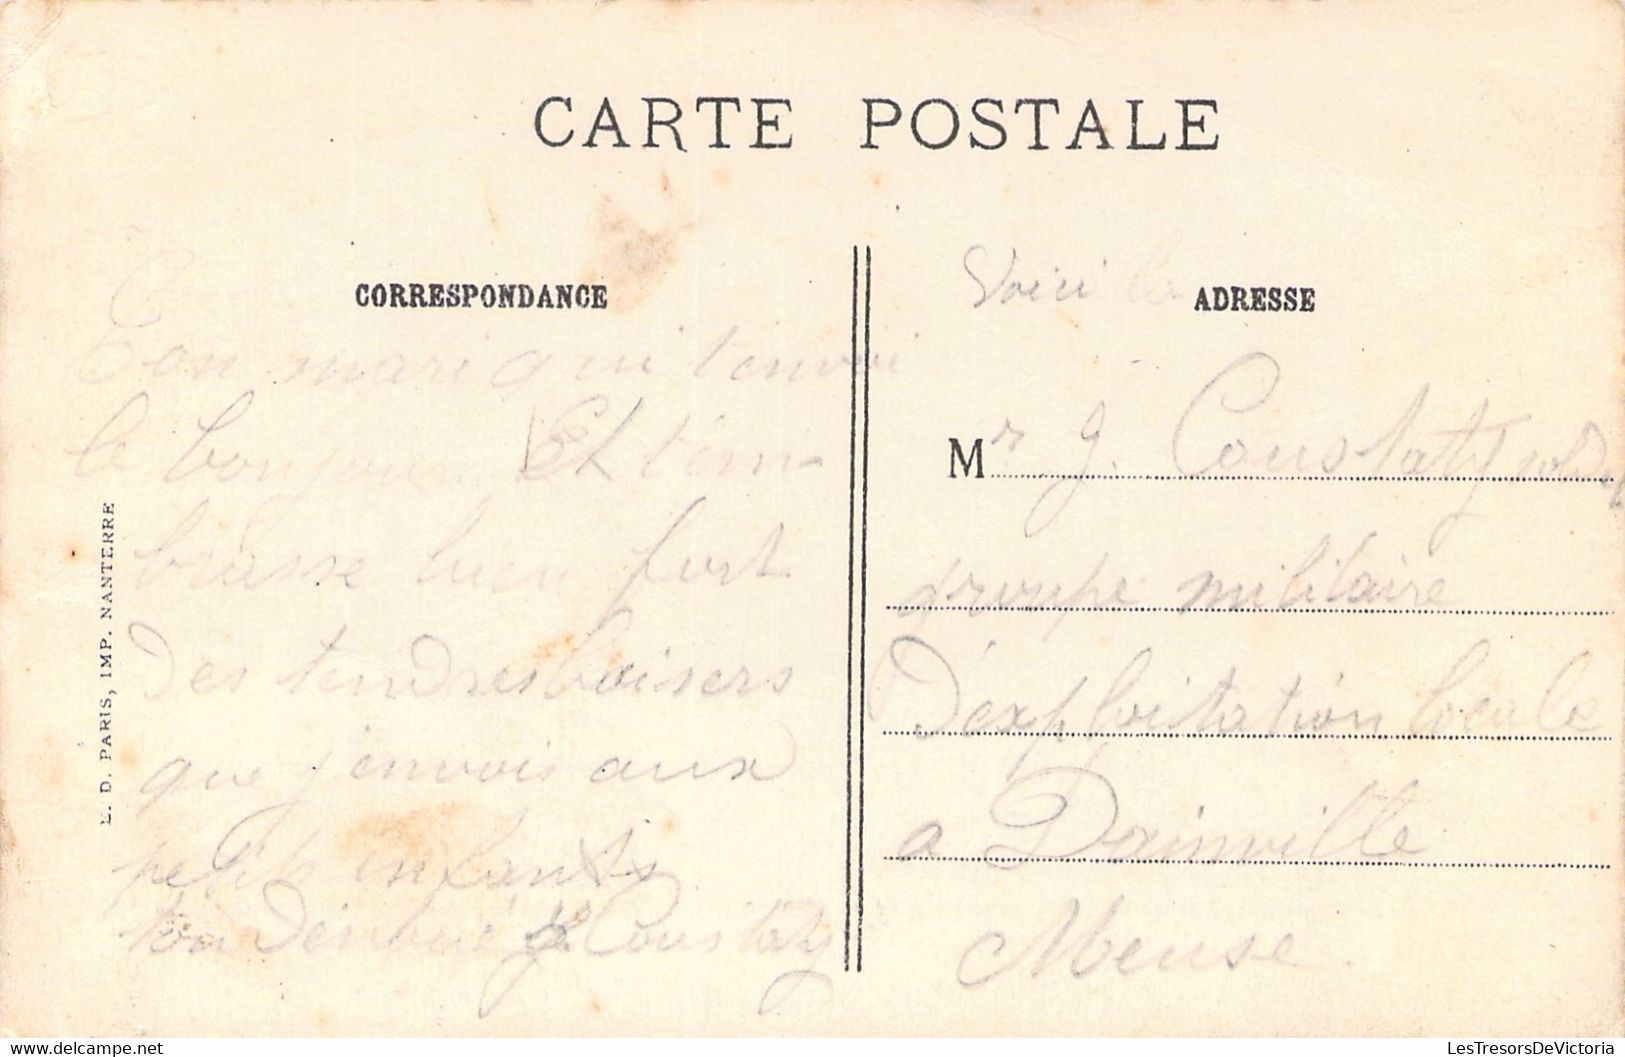 CARTE POSTALE
CORRESPONDANCE
Ton mari qui t'envoi
le bonjour Et t'em-
brasse bien fort
Des tendres baisers
que j'envois aux
petits enfants
ton Dévoué J. Coustaty
E. D. PARIS, IMP. NANTERRE
Voici les ADRESSE
Mr J. Coustaty soldat
groupe militaire
D'exploitation locale
a Dainville
Meuse.
LesTresorsDeVictoria